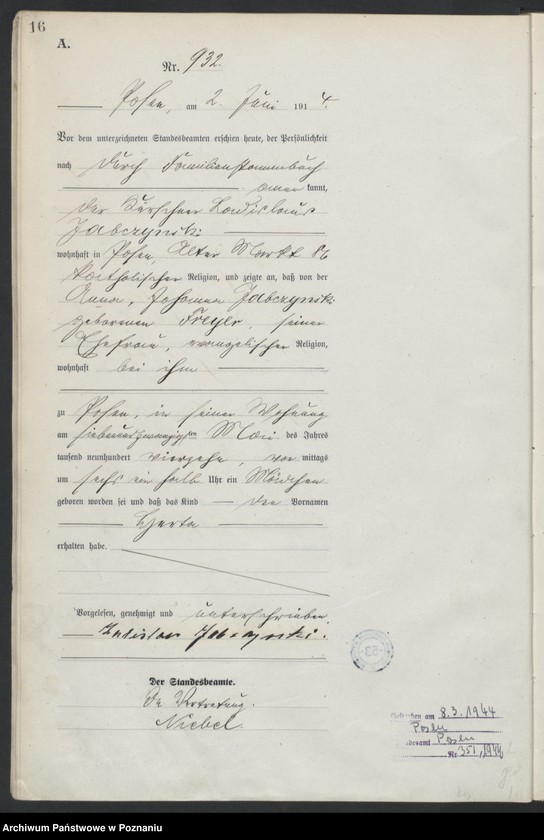 16
A.
Nr. 932.
Posen, am 2. Juni 1914.
Vor dem unterzeichneten Standesbeamten erschien heute, der Persönlichkeit
nach durch Familienstammbuch
aner kannt,
der Kürschner Ladislaus
Jabczynski
wohnhaft in Posen, Alter Markt 86
katholischer Religion, und zeigte an, daß von der
Anna, Johanna Jabczynski
geborenen Freyer, seiner
Ehefrau, evangelischer Religion,
wohnhaft bei ihm
zu Posen, in seiner Wohnung
am siebenundzwanzigsten Mai des Jahres
tausend neunhundert vierzehn, vor mittags
um sechs ein halb Uhr ein Mädchen
geboren worden sei und daß das Kind den Vornamen
Herta
erhalten habe.
Vorgelesen, genehmigt und unterschrieben.
Ladislaus Jabczynski.
Der Standesbeamte.
In Vertretung.
Niebel
Gestorben am 8.3.1944
Posen
Standesamt Posen
Nr 351/1944
Archiwum Państwowe w Poznaniu
szukajwarchiwach.gov.pl